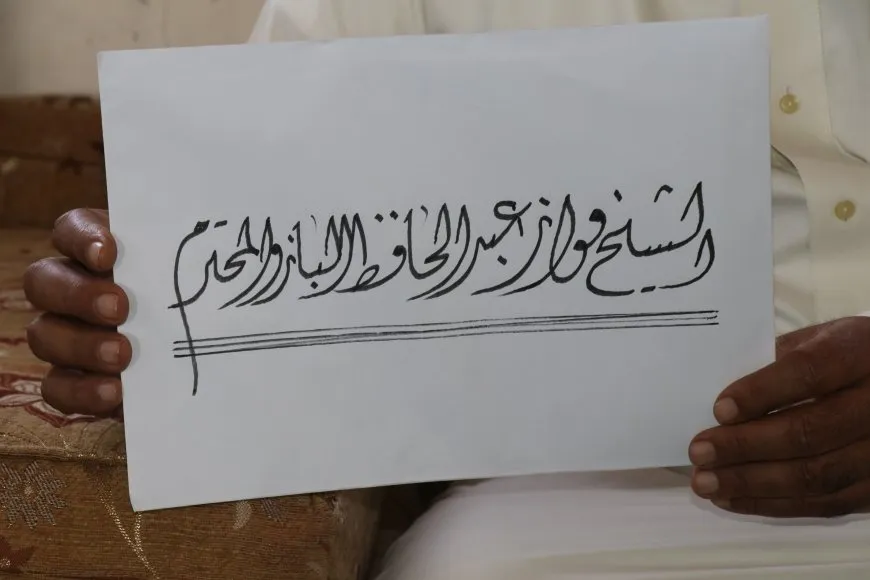 الشيخ فواز عبدالحافظ البازو المحترم